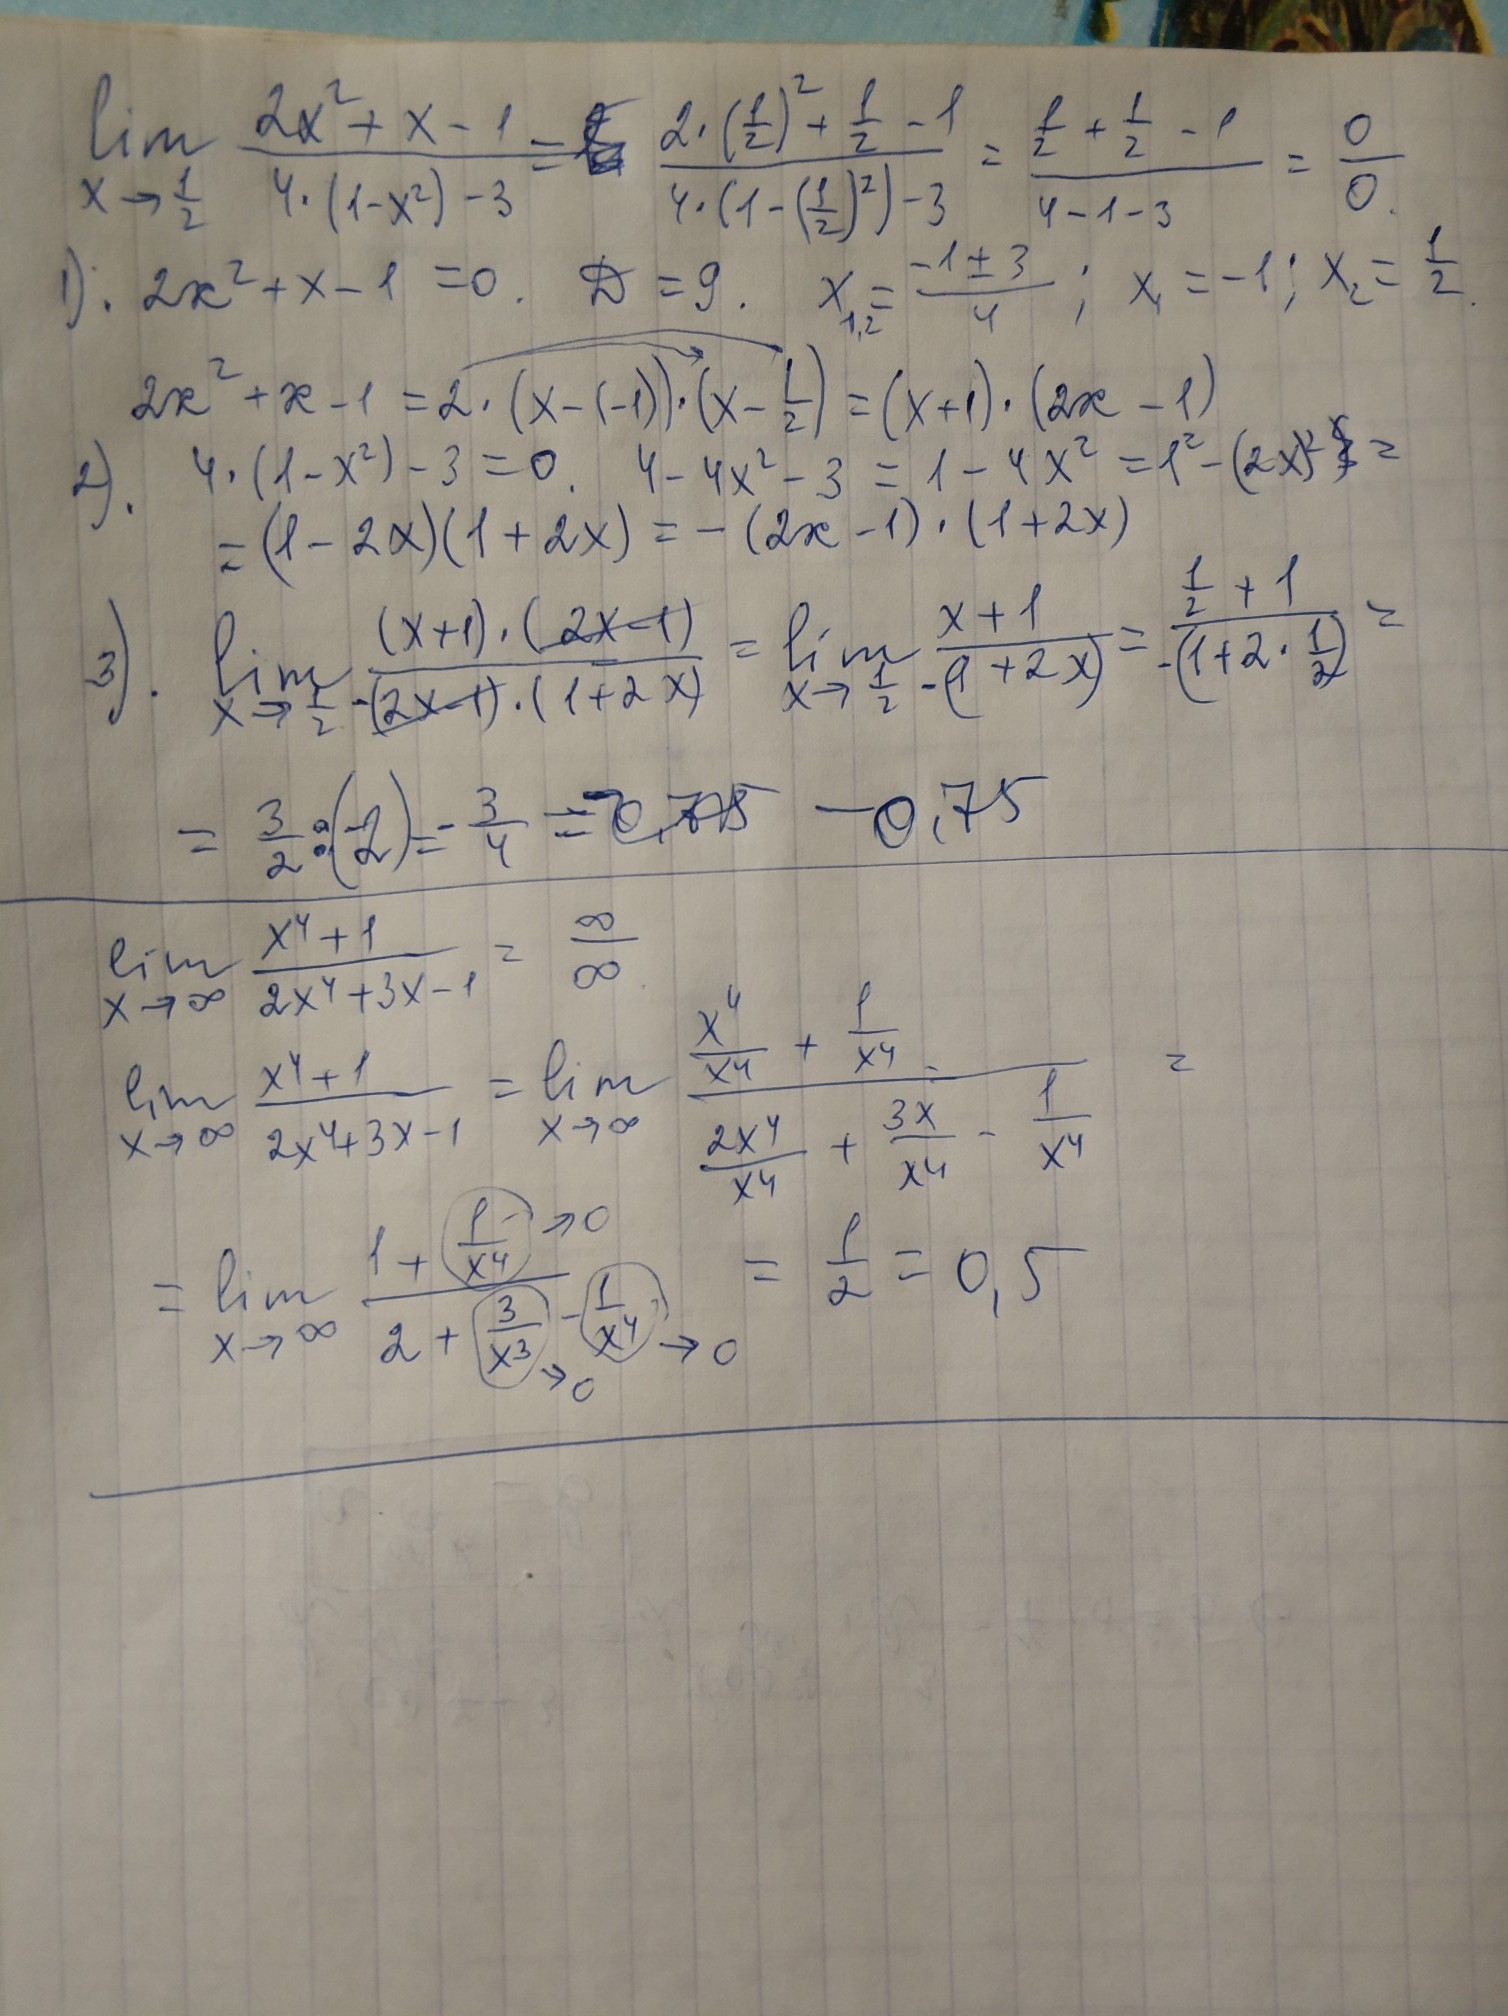 lim x→1/2 (2x²+x-1)/(4·(1-x²)-3) = (2·(1/2)²+1/2-1)/(4·(1-(1/2)²)-3) = (1/2+1/2-1)/(4-1-3) = 0/0.
1). 2x²+x-1=0. D=9. x₁,₂=(-1±3)/4; x₁=-1; x₂=1/2.
2x²+x-1=2·(x-(-1))·(x-1/2)=(x+1)·(2x-1)
2). 4·(1-x²)-3=0. 4-4x²-3=1-4x²=1²-(2x)²=
=(1-2x)(1+2x)=-(2x-1)·(1+2x)
3). lim x→1/2 ((x+1)·(2x-1))/(-(2x-1)·(1+2x)) = lim x→1/2 (x+1)/(-(1+2x)) = (1/2+1)/(-(1+2·1/2)) =
= 3/2:(-2)=-3/4= -0,75
lim x→∞ (x⁴+1)/(2x⁴+3x-1) = ∞/∞.
lim x→∞ (x⁴+1)/(2x⁴+3x-1) = lim x→∞ (x⁴/x⁴+1/x⁴)/(2x⁴/x⁴+3x/x⁴-1/x⁴) =
= lim x→∞ (1+1/x⁴→0)/(2+3/x³→0-1/x⁴→0) = 1/2 = 0,5